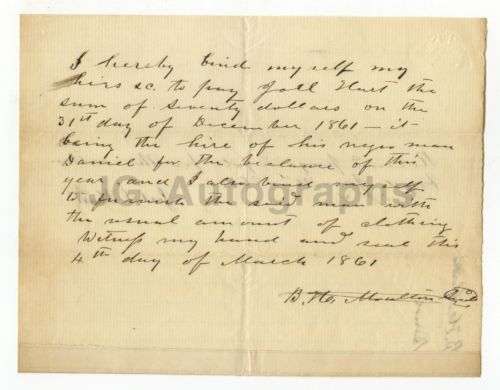 I hereby bind myself my
hirs &c. to pay Joel Hurt the
sum of Seventy dollars on the
31st day of December 1861 – it
being the hire of his negro man
Daniel for the balance of this
year and I also bind myself
to furnish the said man with
the usual amount of clothing
Witness my hand and seal this
4th day of March 1861
B. H. Moulton
JG Autographs